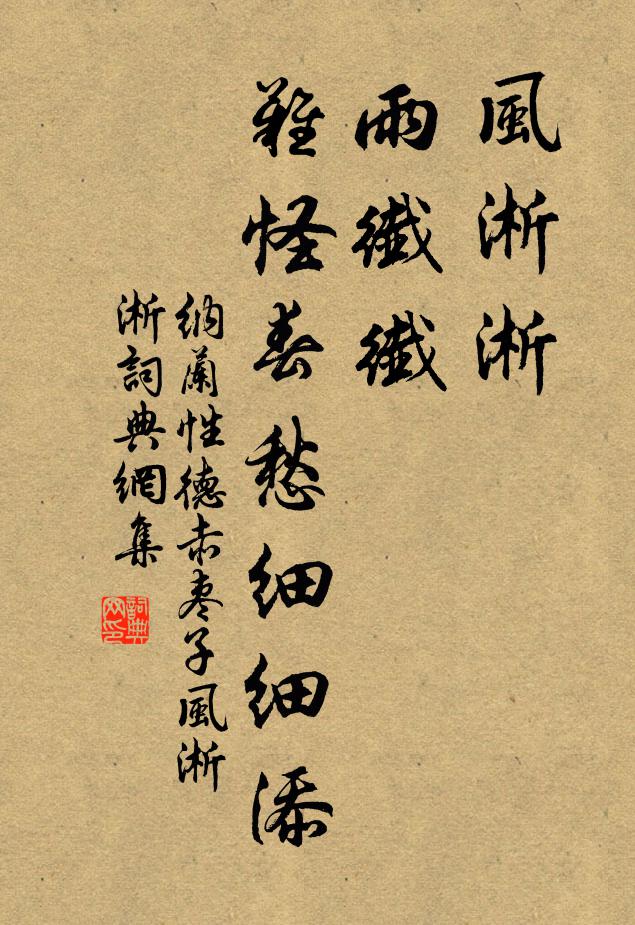 風淅淅
雨纖纖
難怪春愁細細添
納蘭性德赤棗子風淅
淅詞典網集
詞典
网印